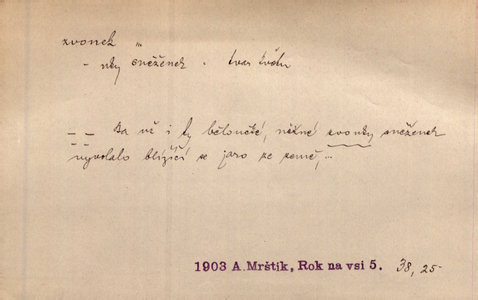 zvonek
- nky sněženek . tvar květu
— — Ba už i ty běloučké, něžné zvonky sněženek
vyvolalo blížící se jaro ze země, ...
1903 A. Mrštík, Rok na vsi 5. 38, 25-